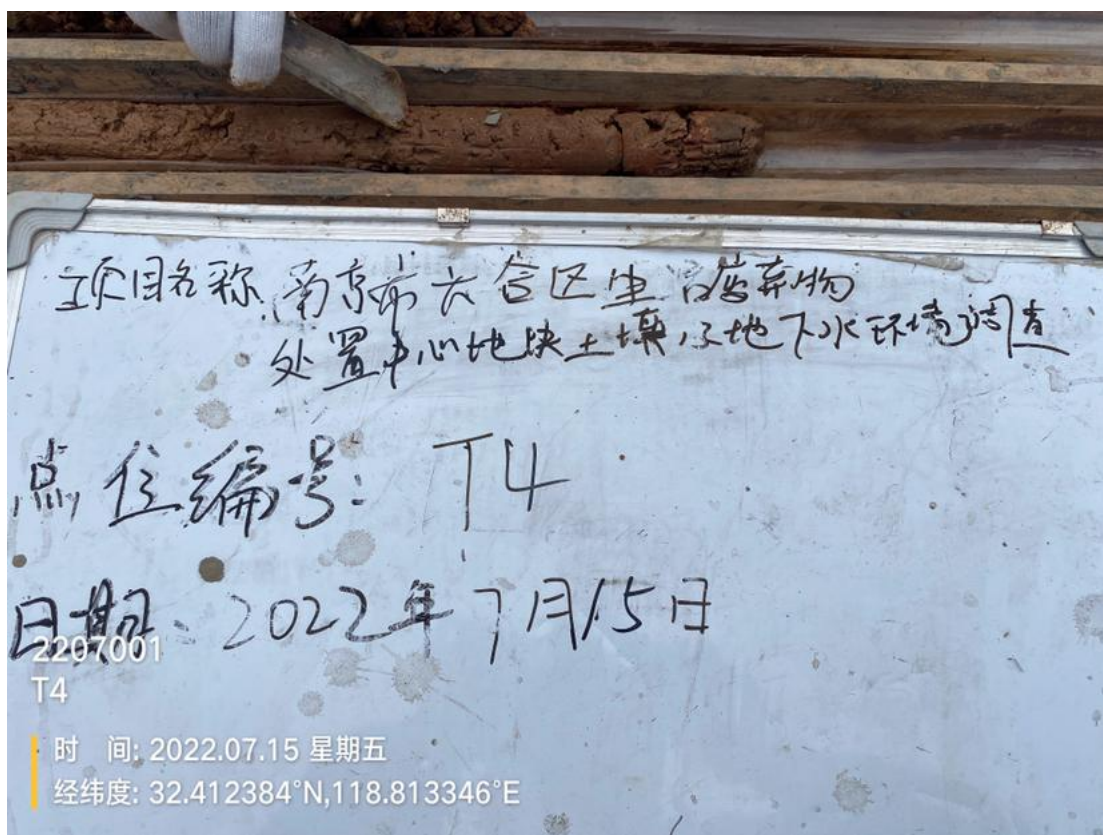 项目名称：南京市六合区生活废弃物
处置中心地块土壤及地下水环境调查
点位编号：T4
日期：2022年7月15日
2207001
T4
时 间: 2022.07.15 星期五
经纬度: 32.412384°N,118.813346°E